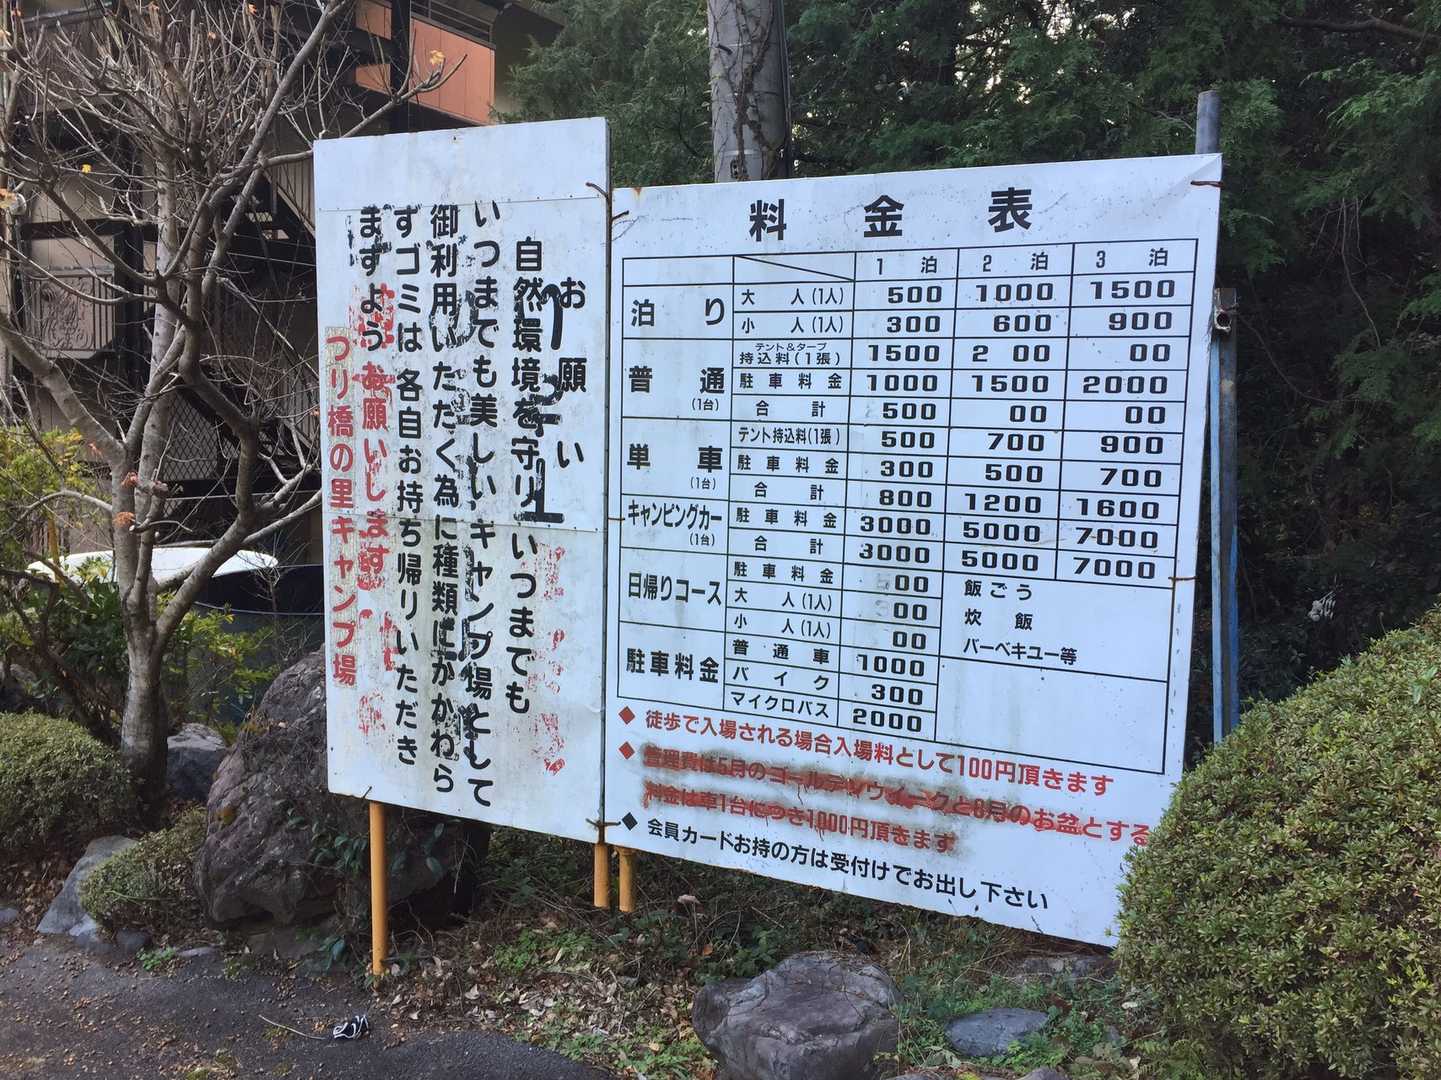 お願い
自然環境を守り、いつまでも
いつまでも美しいキャンプ場として
御利用いただく為に種類にかかわら
ずゴミは各自お持ち帰りいただき
ますようお願いします
つり橋の里キャンプ場
料金表
1泊 2泊 3泊
泊り 大人(1人) 500 1000 1500
小人(1人) 300 600 900
普通(1台) テント&タープ持込料(1張) 1500 2 00 00
駐車料金 1000 1500 2000
合計 500 00 00
単車(1台) テント持込料(1張) 500 700 900
駐車料金 300 500 700
合計 800 1200 1600
キャンピングカー(1台) 駐車料金 3000 5000 7000
合計 3000 5000 7000
日帰りコース 駐車料金 00 飯ごう
大人(1人) 00 炊飯
小人(1人) 00 バーベキュー等
駐車料金 普通車 1000
バイク 300
マイクロバス 2000
◆ 徒歩で入場される場合入場料として100円頂きます
◆ 管理費は5月のゴールデンウィークと8月のお盆とする
料金は車1台につき1000円頂きます
◆ 会員カードお持の方は受付けでお出し下さい